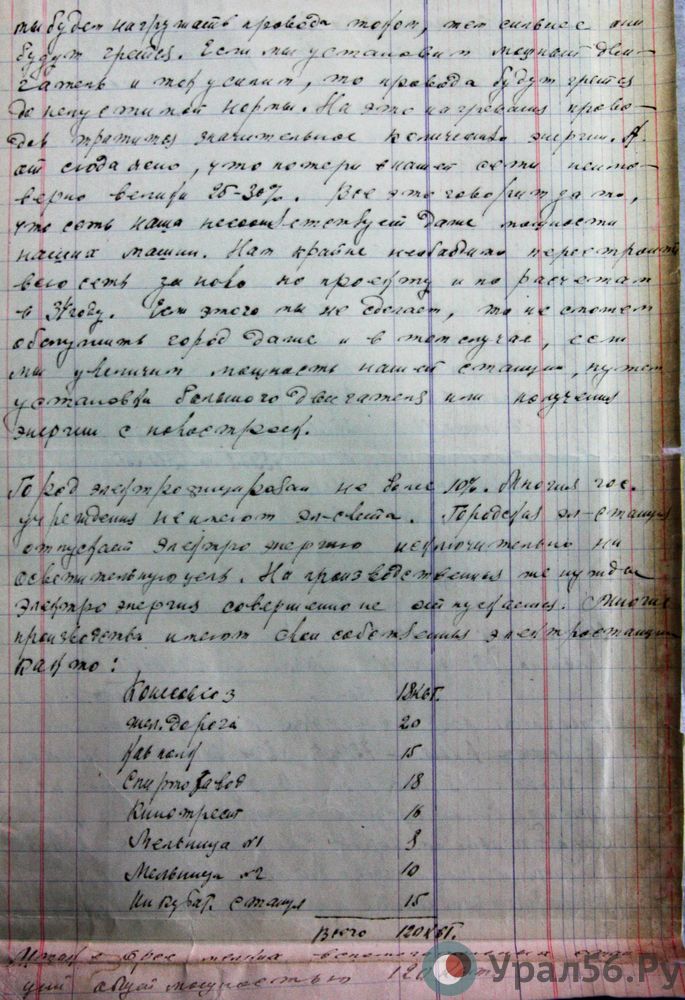 мы будем нагружать провода током, тем сильнее они
будут грется. Если мы установим мощный дви-
гатель и ток усилим, то провода будут грется
до непустимой нормы. На это нагревания прово-
дов тратится значительное количество энергии. А
отсюда ясно, что потери в нашей сети неимо-
верно велики 25-30%. Все это говорит за то,
что сеть наша несоответствует даже мощности
наших машин. Нам крайне необходимо перестроить
всю сеть за ново по проекту и по расчетам
в году. Если этого мы не сделаем, то не сможем
обслужить город даже и в том случае, если
мы увеличим мощность нашей станции, путем
установки большого двигателя или получения
энергии с новостроек.
Город электрофицирован не более 10%. Многия гос.
учреждения неимеют эл-света. Городская эл-станция
отпускает электро энергию исключительно на
осветительную цель. На производственныя же нужды
электро энергия совершенно не отпускается. Многие
производства имеют свои собственныя электростанции
как то:
Конесовхоз 18 квт.
жел. дорога 20
Кав полк 15
Спиртозавод 18
Кинотрест 16
Мельница №1 8
Мельница №2 10
Инкубат. станция 15
Всего 120 квт.
мелких
ций общей мощностью 120
Урал56.Ру